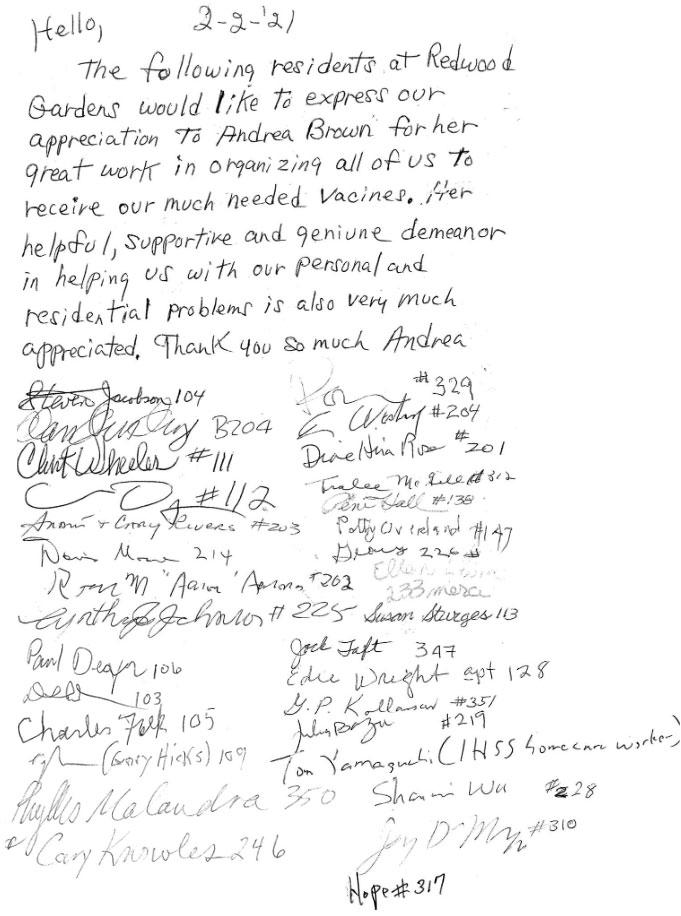 Hello, 2-2-'21
The following residents at Redwood
Gardens would like to express our
appreciation to Andrea Brown for her
great work in organizing all of us to
receive our much needed vacines. Her
helpful, supportive and geniune demeanor
in helping us with our personal and
residential problems is also very much
appreciated. Thank you so much Andrea
Steven Jacobson 104
B204
Clint Wheeler #111
#112
Rivers #203
214
"Aaron" #202
Cynthia Johnson # 225
Paul 106
103
Charles Folk 105
(Gory Hicks) 109
Phyllis Malandra 350
# Cary Knowles 246
#329
#204
Rose #201
#312
Hall #138
Patty Overland #147
226
Ellen
233
Susan Sturges 113
Jock Taft 347
Edie Wright apt 128
G.P. #351
#219
Tom Yamaguchi (IHSS homecare worker)
Wu #228
#310
Hope #317